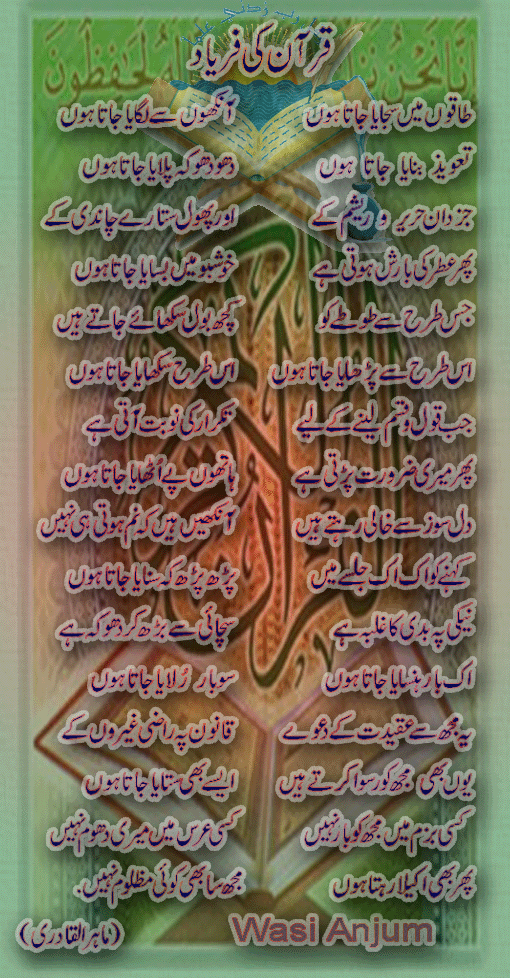 قرآن کی فریاد
اِنَّا نَحْنُ لَحٰفِظُوْنَ
طاقوں میں سجایا جاتا ہوں آنکھوں سے لگایا جاتا ہوں
تعویذ بنایا جاتا ہوں دھو دھو کہ پلایا جاتا ہوں
جزدان حریر و ریشم کے اور پھول ستارے چاندی کے
پھر عطر کی بارش ہوتی ہے خوشبو میں بسایا جاتا ہوں
جس طرح سے طوطے کو کچھ بول سکھائے جاتے ہیں
اس طرح سے پڑھایا جاتا ہوں اس طرح سکھایا جاتا ہوں
جب قول و قسم لینے کے لیے تکرار کی نوبت آتی ہے
پھر میری ضرورت پڑتی ہے ہاتھوں پے اُٹھایا جاتا ہوں
دل سوز سے خالی رہتے ہیں آنکھیں ہیں کہ نم ہوتی ہی نہیں
کہنے کو اک اک جلسے میں پڑھ پڑھ کہ سنایا جاتا ہوں
نیکی پہ بدی کا غلبہ ہے سچائی سے بڑھ کر دھوکہ ہے
اک بار ہنسایا جاتا ہوں سو بار رُلایا جاتا ہوں
یہ مجھ سے عقیدت کے دعوے قانون پر راضی غیروں کے
یوں بھی مجھ کو رسوا کرتے ہیں ایسے بھی ستایا جاتا ہوں
کسی بزم میں مجھ کو بار نہیں کسی عرس میں میری دھوم نہیں
پھر بھی اکیلا رہتا ہوں مجھ سا بھی کوئی مظلوم نہیں.
(ماہر القادری) Wasi Anjum